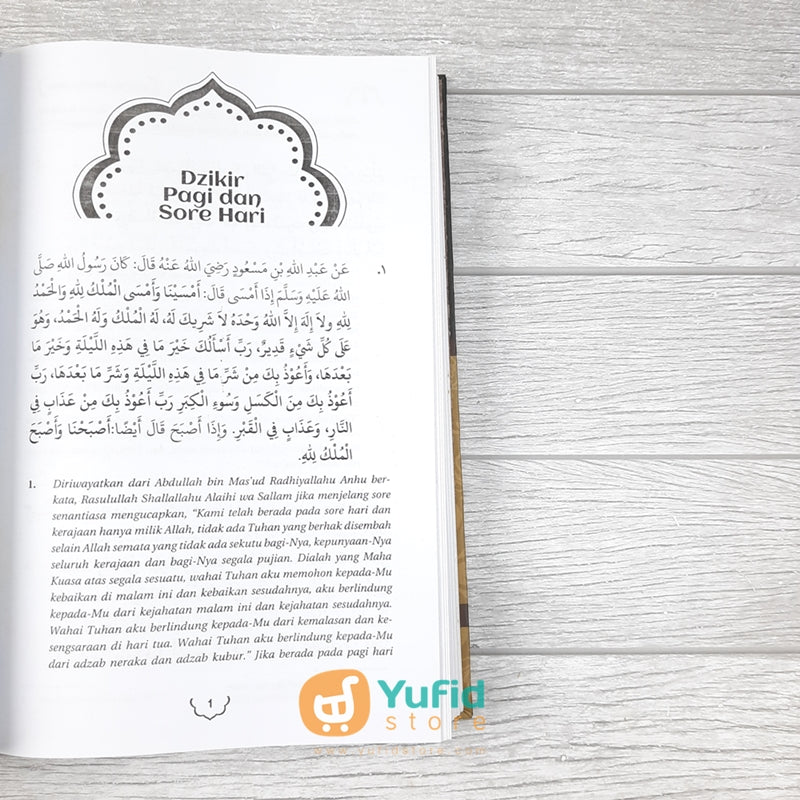 Dzikir
Pagi dan
Sore Hari
١. عَنْ عَبْدِ اللهِ بْنِ مَسْعُودٍ رَضِيَ اللهُ عَنْهُ قَالَ: كَانَ رَسُولُ اللهِ صَلَّى
اللهُ عَلَيْهِ وَسَلَّمَ إِذَا أَمْسَى قَالَ: أَمْسَيْنَا وَأَمْسَى الْمُلْكُ لِلَّهِ وَالْحَمْدُ
لِلَّهِ وَلاَ إِلَهَ إِلاَّ اللهُ وَحْدَهُ لاَ شَرِيكَ لَهُ، لَهُ الْمُلْكُ وَلَهُ الْحَمْدُ، وَهُوَ
عَلَى كُلِّ شَيْءٍ قَدِيرٌ، رَبِّ أَسْأَلُكَ خَيْرَ مَا فِي هَذِهِ اللَّيْلَةِ وَخَيْرَ مَا
بَعْدَهَا، وَأَعُوذُ بِكَ مِنْ شَرِّ مَا فِي هَذِهِ اللَّيْلَةِ وَشَرِّ مَا بَعْدَهَا، رَبِّ
أَعُوذُ بِكَ مِنَ الْكَسَلِ وَسُوءِ الْكِبَرِ رَبِّ أَعُوذُ بِكَ مِنْ عَذَابٍ فِي
النَّارِ، وَعَذَابٍ فِي الْقَبْرِ. وَإِذَا أَصْبَحَ قَالَ أَيْضًا:أَصْبَحْنَا وَأَصْبَحَ
الْمُلْكُ لِلَّهِ.
1. Diriwayatkan dari Abdullah bin Mas'ud Radhiyallahu Anhu ber-
kata, Rasulullah Shallallahu Alaihi wa Sallam jika menjelang sore
senantiasa mengucapkan, "Kami telah berada pada sore hari dan
kerajaan hanya milik Allah, tidak ada Tuhan yang berhak disembah
selain Allah semata yang tidak ada sekutu bagi-Nya, kepunyaan-Nya
seluruh kerajaan dan bagi-Nya segala pujian. Dialah yang Maha
Kuasa atas segala sesuatu, wahai Tuhan aku memohon kepada-Mu
kebaikan di malam ini dan kebaikan sesudahnya, aku berlindung
kepada-Mu dari kejahatan malam ini dan kejahatan sesudahnya.
Wahai Tuhan aku berlindung kepada-Mu dari kemalasan dan ke-
sengsaraan di hari tua. Wahai Tuhan aku berlindung kepada-Mu
dari adzab neraka dan adzab kubur." Jika berada pada pagi hari
1
Yufid
store
www.yufidstore.com